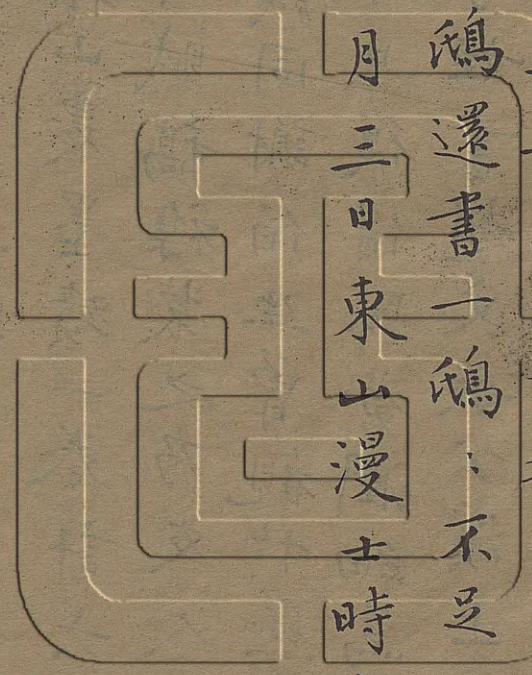 鴟還書一鴟:不足
月三日東山漫士時